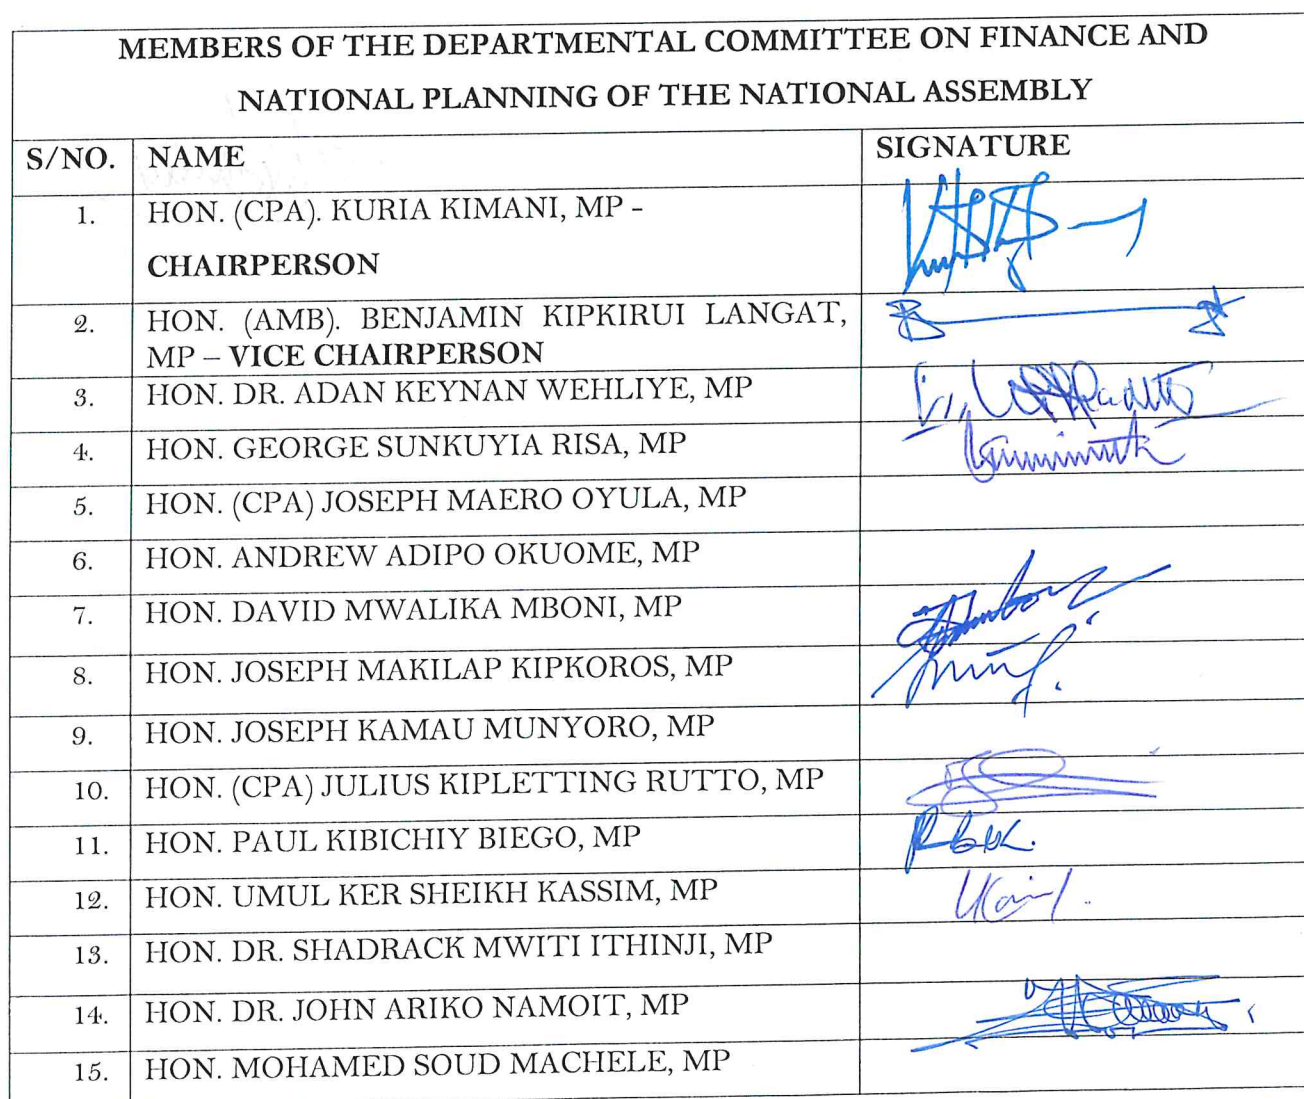 MEMBERS OF THE DEPARTMENTAL COMMITTEE ON FINANCE AND
NATIONAL PLANNING OF THE NATIONAL ASSEMBLY
S/NO. NAME SIGNATURE
1. HON. (CPA). KURIA KIMANI, MP -
CHAIRPERSON
2. HON. (AMB). BENJAMIN KIPKIRUI LANGAT,
MP – VICE CHAIRPERSON
3. HON. DR. ADAN KEYNAN WEHLIYE, MP
4. HON. GEORGE SUNKUYIA RISA, MP
5. HON. (CPA) JOSEPH MAERO OYULA, MP
6. HON. ANDREW ADIPO OKUOME, MP
7. HON. DAVID MWALIKA MBONI, MP
8. HON. JOSEPH MAKILAP KIPKOROS, MP
9. HON. JOSEPH KAMAU MUNYORO, MP
10. HON. (CPA) JULIUS KIPLETTING RUTTO, MP
11. HON. PAUL KIBICHIY BIEGO, MP
12. HON. UMUL KER SHEIKH KASSIM, MP
13. HON. DR. SHADRACK MWITI ITHINJI, MP
14. HON. DR. JOHN ARIKO NAMOIT, MP
15. HON. MOHAMED SOUD MACHELE, MP